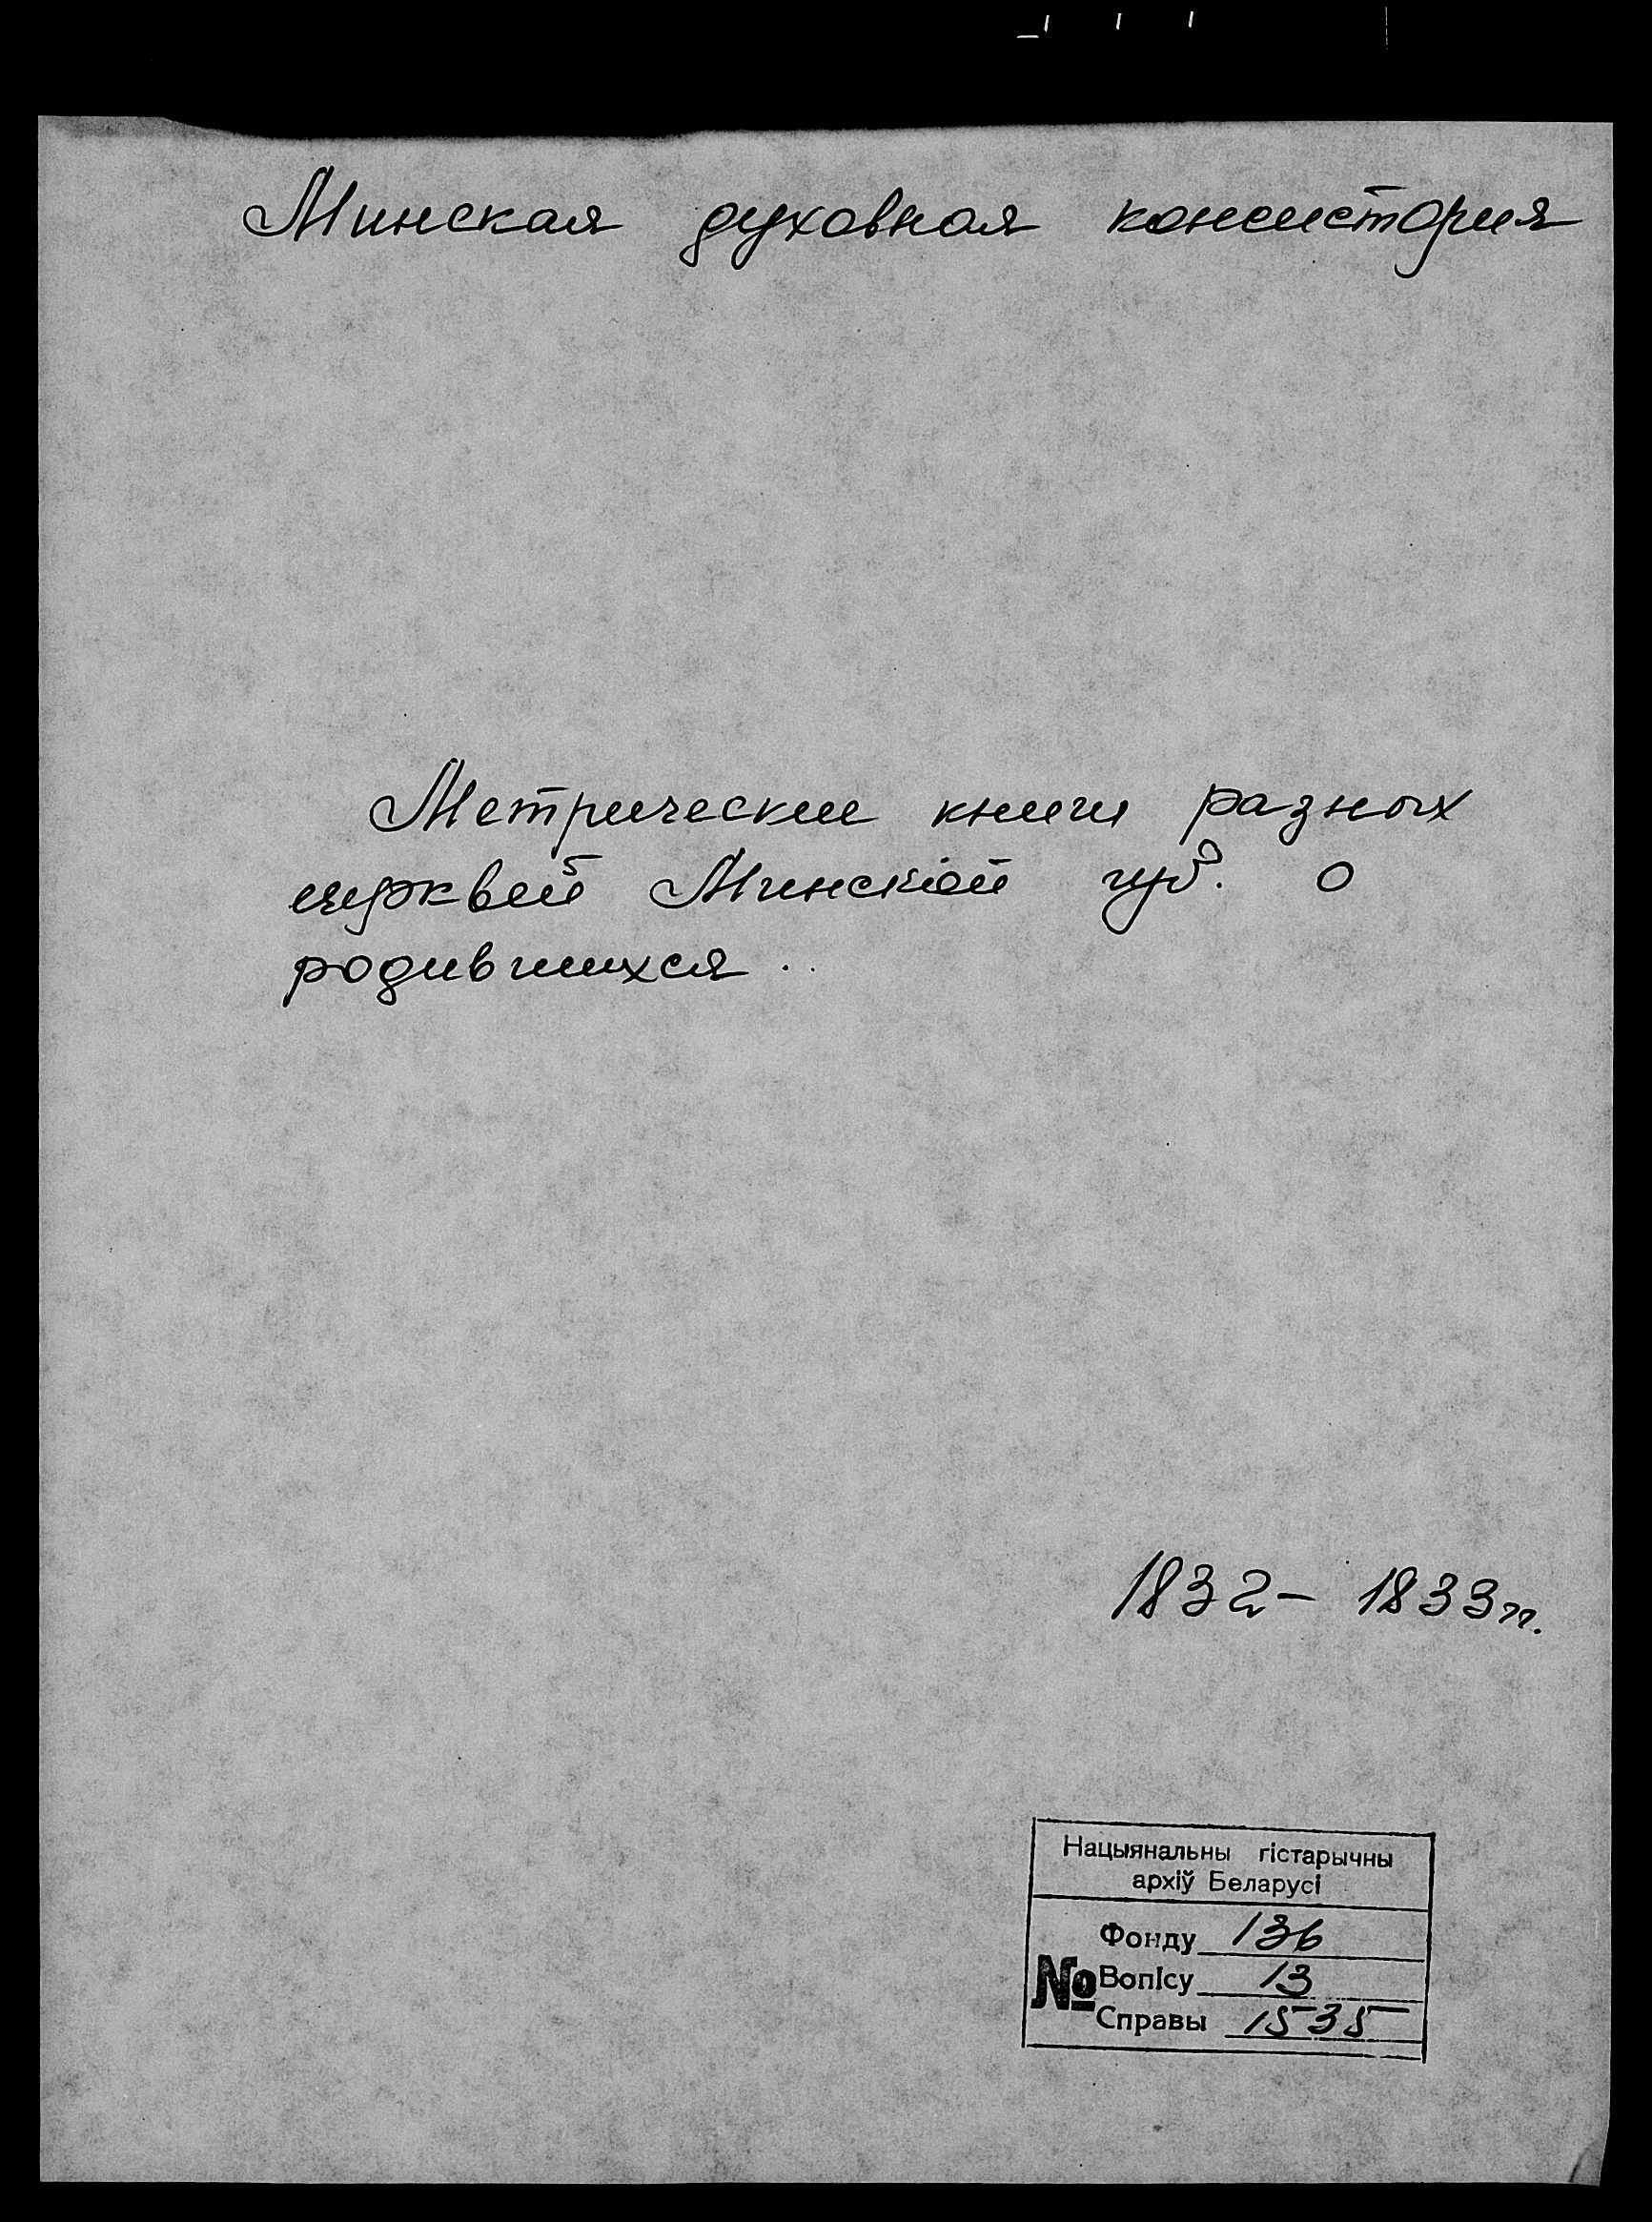 Минская духовная консистория
Метрические книги разных
церквей Минской губ. о
родившихся.
1832 - 1833 гг.
Нацыянальны гістарычны
архіў Беларусі
Фонду 136
№ Вопісу 13
Справы 1535